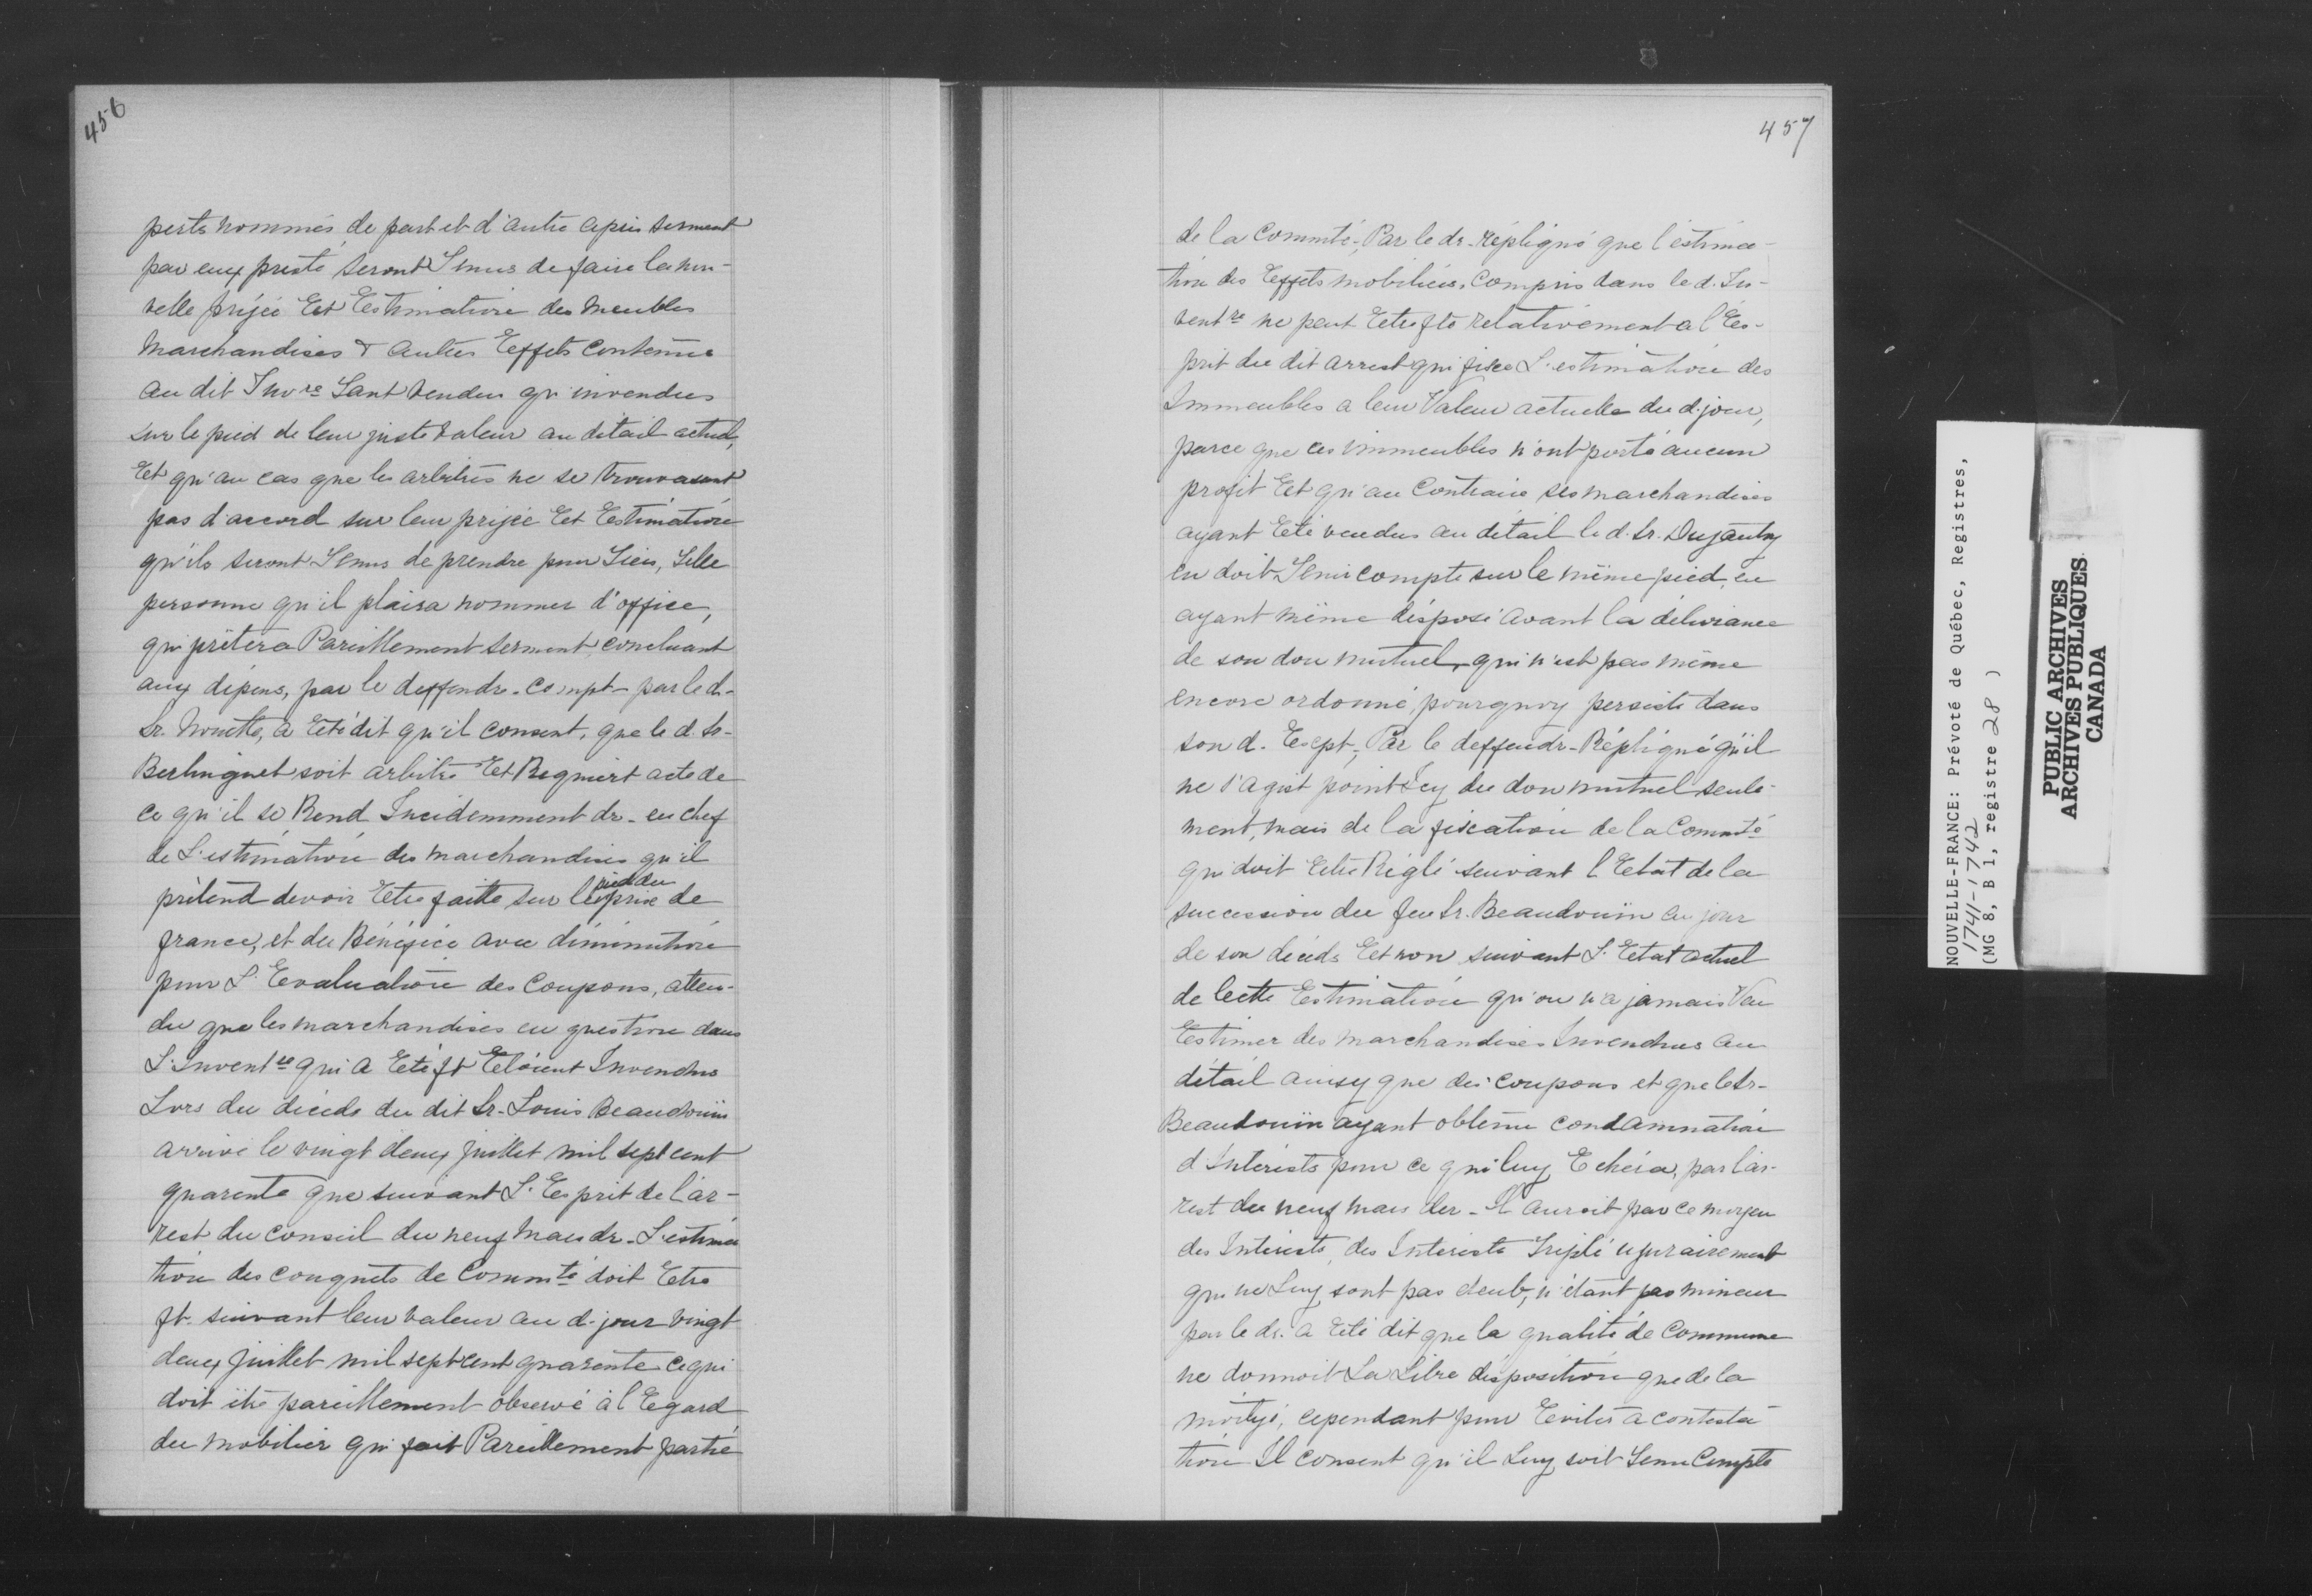 456
perts nommés de part et d'autre après serment
par eux presté seront Tenus de faire la nou-
velle prisée Et Estimation des Meubles
Marchandises & autres Effets contenus
au dit Invre Tant vendus qu'invendus
sur le pied de leur juste valeur au détail actuel,
Et qu'au cas que les arbitres ne se trouvasent
pas d'accord sur leur prisée Et Estimation
qu'ils seront Tenus de prendre pour Tiers, Telle
personne qu'il plaira nommer d'office,
qui prêtera Pareillement serment, concluant
aux dépens, par le deffendr. Compt- par le d.
Sr. Nouette, a Eté dit qu'il consent, que le d. Sr-
Berlinguet soit arbitre Et Requiert acte de
ce qu'il se Rend Incidemment dr- en chef
de L'estimation des marchandises qu'il
prétend devoir Etre faitte sur le pied du prix de
france, et du Bénéfice avec diminution
pour L'Evaluation des Coupons, atten-
du que les marchandises en question dans
L'Inventre qui a Eté ft Etoient Invendus
Lors du décéds du dit Sr- Louis Beaudouin
arrivé le vingt deux juillet mil sept cent
quarente que suivant L'Esprit de l'ar-
rest du conseil du neuf Mars dr- L'estima
tion des conquets de Commté doit Etre
ft. suivant leur valeur au d. jour vingt
deux Juillet mil sept cent quarente ce qui
doit être pareillement observé à l'Egard
du mobilier qui fait Pareillement partie
457
de la Commté-, Par le dr- répliqué que l'estima-
tion des Effets mobiliers, Compris dans le d. In-
ventre ne peut Etre fte relativement a l'Es-
prit du dit arrest qui fixe L'estimation des
Immeubles a leur Valeur actuelle du d. jour,
parce que ces immeubles n'ont porté aucun
profit Et qu'au Contraire ses marchandises
ayant Eté vendus au détail le d. Sr. Dujautry
en doit Tenir compte sur le même pied, en
ayant même disposé avant la délivrance
de son don mutuel, qui n'est pas même
encore ordonné, pourquoy persiste dans
son d. Eecpt-, Par le deffendr- Répliqué qu'il
ne s'agit point Icy du don mutuel seule-
ment, mais de la fixation de la Commté
qui doit Etre Réglé suivant l'Etat de la
succession du feu Sr. Beaudouin au jour
de son décéds Et non suivant L'Etat actuel
de Cette Estimation qu'on n'a jamais Veu
Estimer des marchandises Invendus au
détail ainsy que des coupons et que le Sr-
Beaudouin ayant obtenu condamnation
d'Intérests pour ce qui luy Echéra, par l'ar-
rest du neuf mars der- Il auroit par ce moyen
des Interests, des Interests Triplé usurairement
qui ne Luy sont pas deub, n'étant pas mineur
par le dr. a Eté dit que la qualité de Commune
ne donnoit La Libre disposition que de la
moityé, cependant pour Eviter a contesta
tion Il consent qu'il Luy soit Tenu Compte
NOUVELLE-FRANCE: Prévoté de Québec, Registres,
1741-1742
(MG 8, B 1, registre 28 )
PUBLIC ARCHIVES
ARCHIVES PUBLIQUES
CANADA